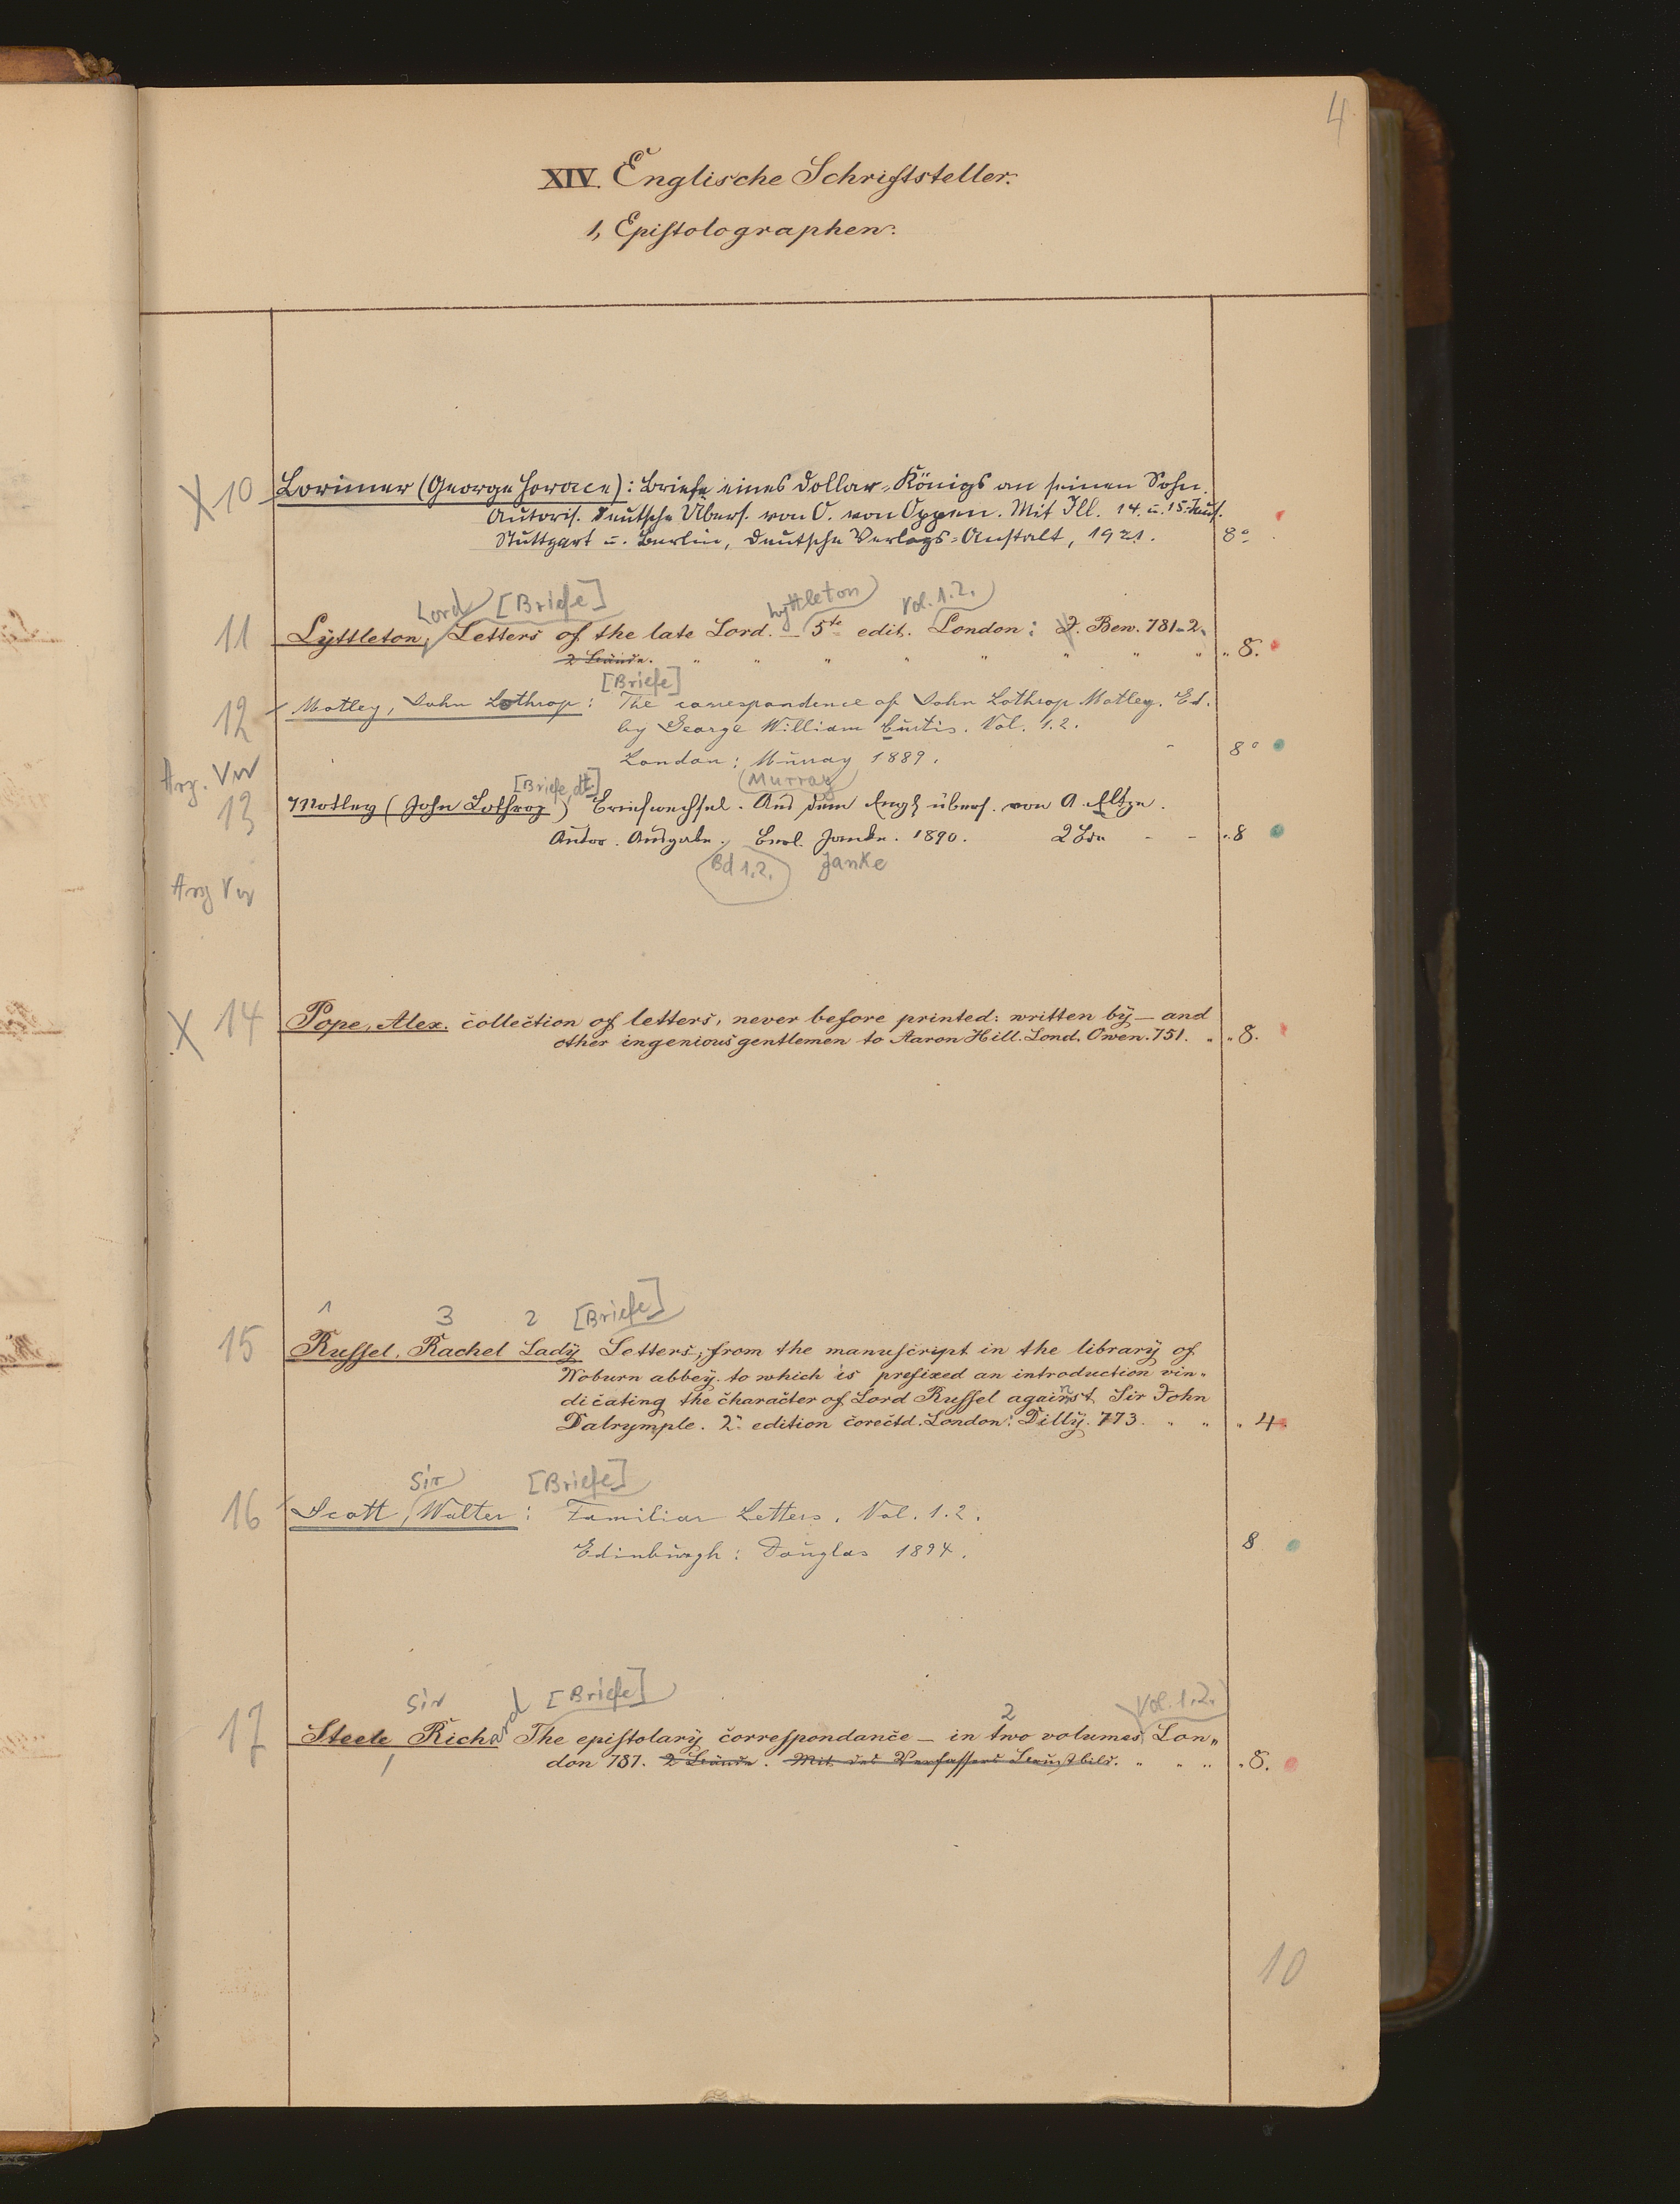 4
XIV. Englische Schriftsteller.
1, Epistolographen.
X 10 Lorimer (George Horace): Briefe eines Dollar-Königs an seinen Sohn.
Autoris. Deutsche Übers. von O. von Oppen. Mit Ill. 14. u. 15. Taus.
Stuttgart u. Berlin, Deutsche Verlags-Anstalt, 1921. 8°
Lord [Briefe] Lyttleton Vol. 1.2.
11 Lyttleton, Letters of the late Lord. — 5te edit. London: J. Bew. 781-2.
2 Bände. " " " " " " " " " 8.
[Briefe]
12 Motley, John Lothrop: The correspondence of John Lothrop Motley. Ed.
by George William Curtis. Vol. 1.2.
London: Murray 1889. 8°
Arg. Vw [Briefe, dt.] Murray
13 Motley (John Lothrop) Briefwechsel. Aus dem Engl. übers. von A. Eltze.
Autor. Ausgabe. Berl. Janke. 1890. 2 Bde - - " 8
Bd 1.2. Janke
Arg Vw
X 14 Pope, Alex. collection of letters, never before printed: written by — and
other ingenious gentlemen to Aaron Hill. Lond. Owen. 751. " " 8.
1 3 2 [Briefe]
15 Russel, Rachel Lady Letters, from the manuscript in the library of
Woburn abbey. to which is prefixed an introduction vin-
dicating the character of Lord Russel against Sir John
Dalrymple. 2. edition corectd. London: Dilly. 773. " " " 4.
Sir [Briefe]
16 Scott, Walter: Familiar Letters. Vol. 1.2.
Edinburgh: Douglas 1894. 8
Sir [Briefe] 2 Vol. 1.2.
17 Steele, Richard The epistolary correspondance — in two volumes, Lon-
don 787. 2 Bände. Mit des Verfassers Brustbild. " " " " 8.
10